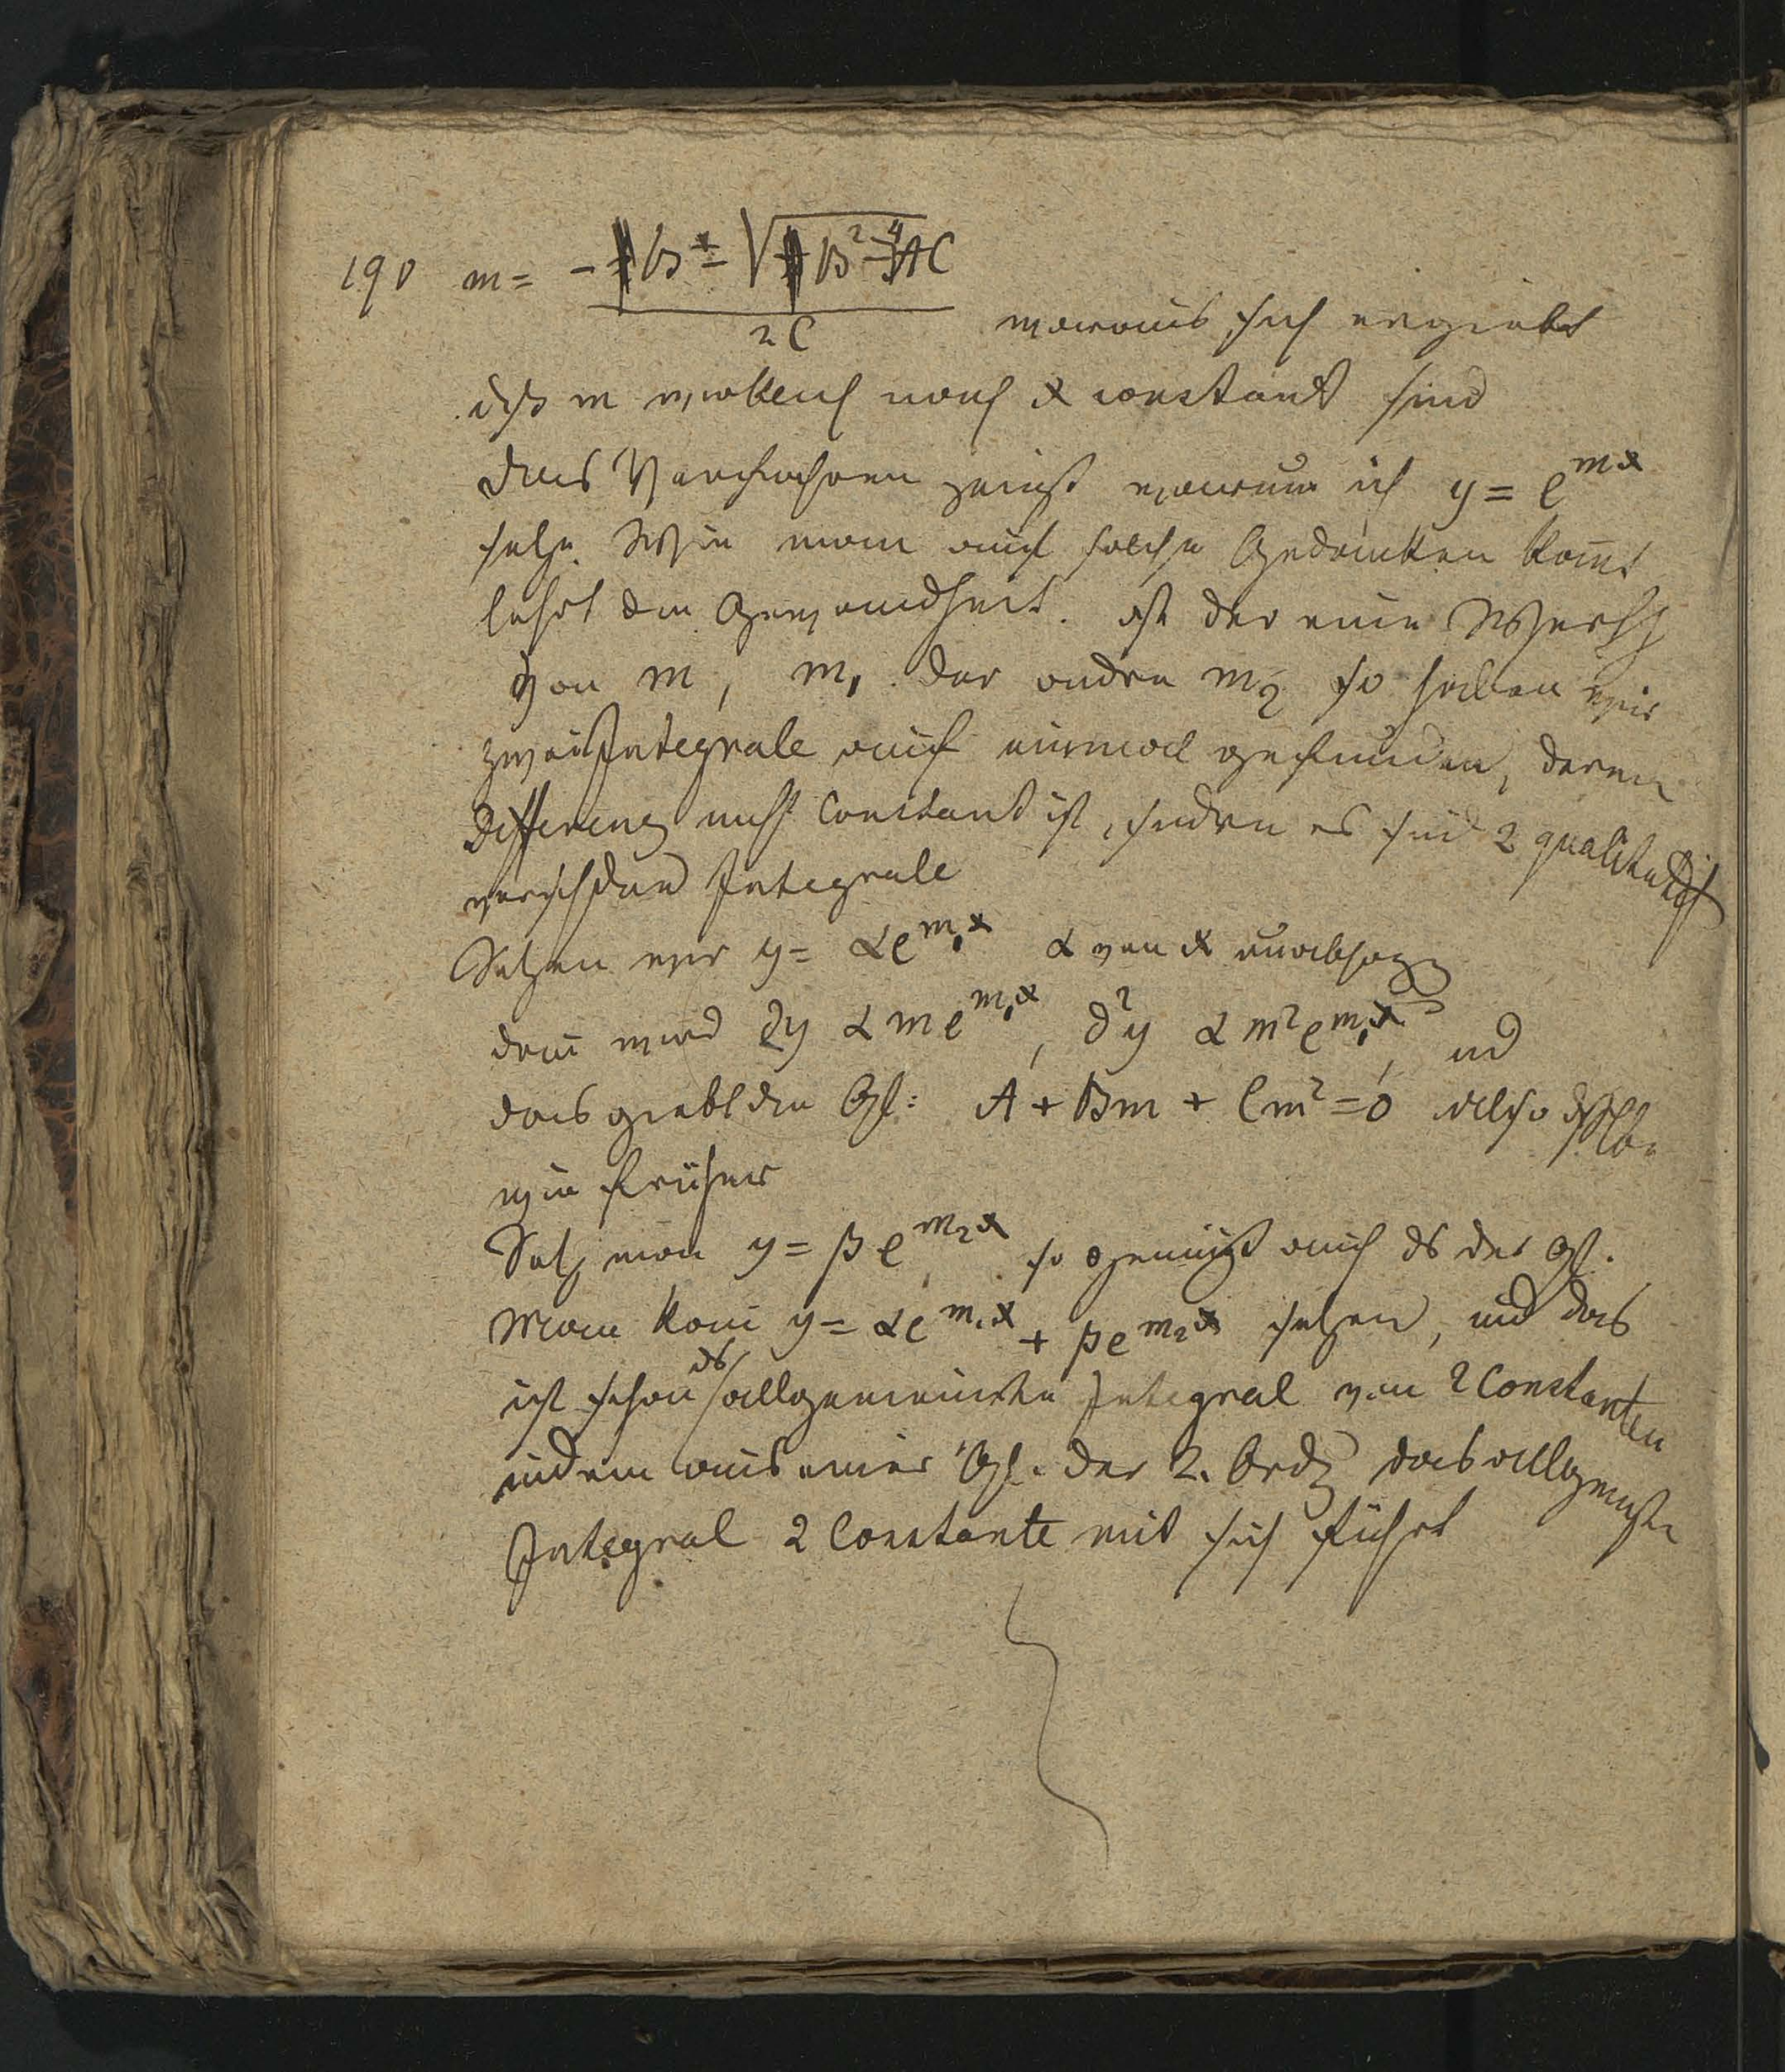 190 m = - B ± √B² - 4AC
2C woraus sich ergiebt
dß m wirklich nach x constant sind
Das Verfahren zeigt warum ich y = e^mx
setze. Wie man auf solche Gedanken kom̅t
lehrt die Gewandheit. Ist der eine Werth
von m, m₁ der andre m₂ so haben wir
zwei Integrale auf einmal gefunden, deren
Differenz nicht Constant ist, sondern es sind 2 qualitativ
verschdene Integrale
Setzen wir y = αe^m₁x α von x unabhägg
dan̅ wird ∂y α m e^m₁x, ∂²y α m² e^m₁x, ud
das giebt die Gl: A + Bm + Cm² = 0 also
wie früher
Setz man y = βe^m₂x so genügt auch ds der Gl.
Man kan̅ y = αe^m₁x + βe^m₂x setzen, und das
ist schon ds allgemeinste Integral von 2 Constanten
indem aus einer Gl. der 2. Ordg das allgemste
Integral 2 Constante mit sich führt